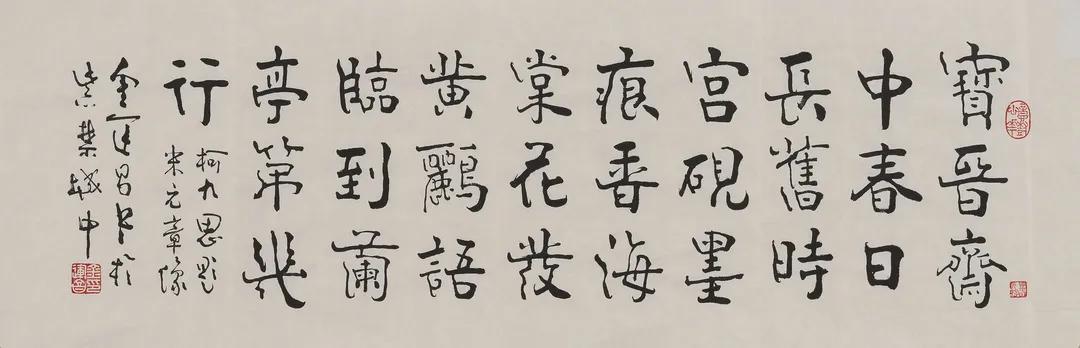 寶晉齋
中春日
長舊時
宮硯墨
痕香海
棠花發
黃鸝語
臨到蘭
亭第幾
行
柯九思題
米元章像
金運昌書於
紫禁城中